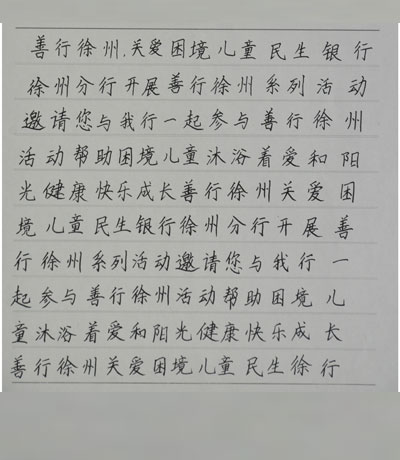 善行徐州.关爱困境儿童民生银行
徐州分行开展善行徐州系列活动
邀请您与我行一起参与善行徐州
活动帮助困境儿童沐浴着爱和阳
光健康快乐成长善行徐州关爱困
境儿童民生银行徐州分行开展善
行徐州系列活动邀请您与我行一
起参与善行徐州活动帮助困境儿
童沐浴着爱和阳光健康快乐成长
善行徐州关爱困境儿童民生徐行